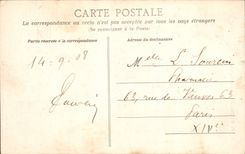 CARTE POSTALE
La correspondance au recto n'est pas acceptée par tous les pays étrangers
(Se renseigner à la Poste)
Partie réservée à la correspondance
Adresse du destinataire
14-9-08
Melle L.
Pharmacie
63, rue de Vanves 63
Paris
XIVe